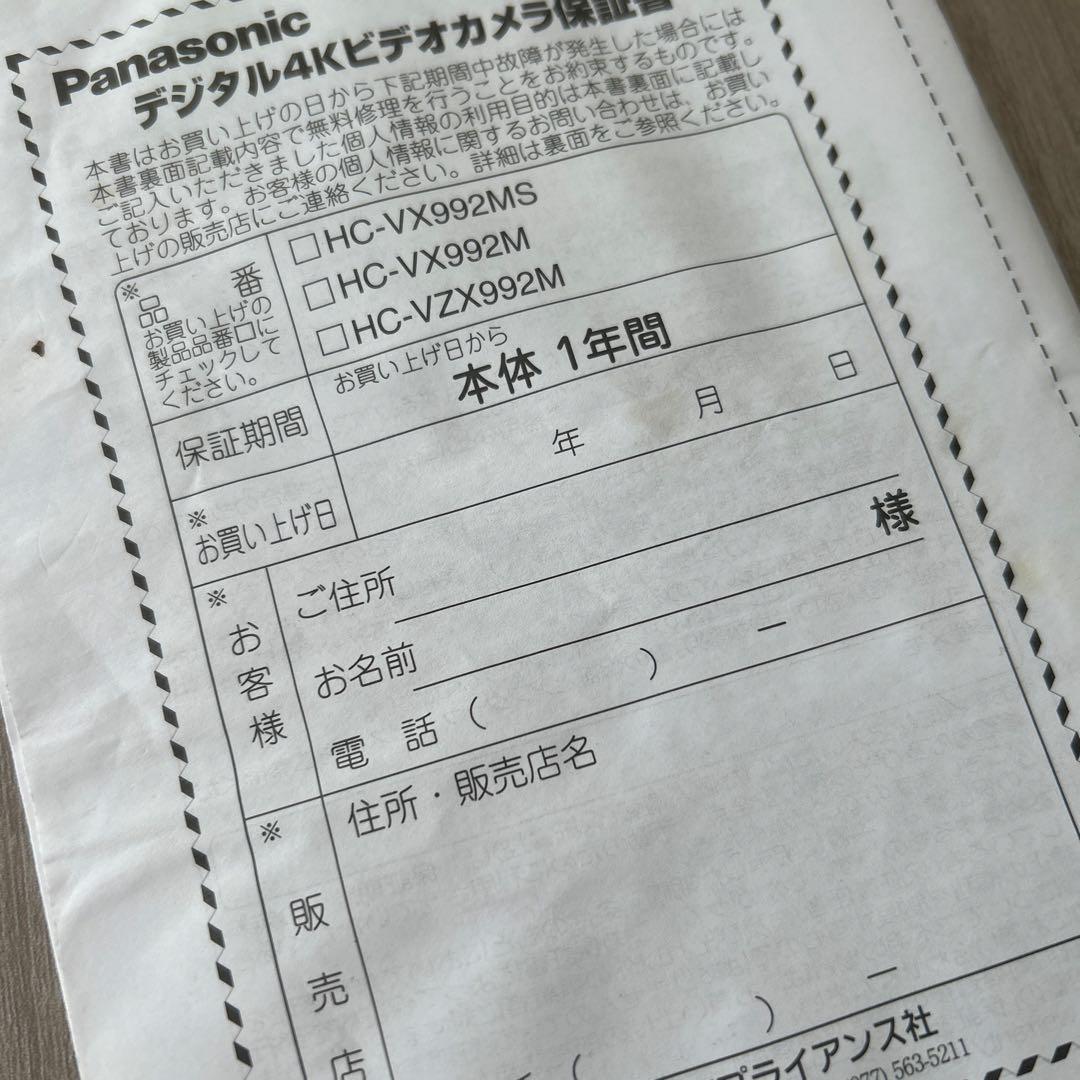 Panasonic
デジタル4Kビデオカメラ保証書
本書はお買い上げの日から下記期間中故障が発生した場合には
本書裏面記載内容で無料修理を行うことをお約束するものです。
ご記入いただきました個人情報の利用目的は本書裏面に記載し
ております。お客様の個人情報に関するお問い合わせは、お買い
上げの販売店にご連絡ください。詳細は裏面をご参照ください。
※
品 番
お買い上げの
製品品番口に
チェックして
ください。
□HC-VX992MS
□HC-VX992M
□HC-VZX992M
保証期間
お買い上げ日から
本体 1年間
※
お買い上げ日
年 月 日
※
お客様
ご住所
お名前 様
電 話 ( ) ー
※
販売店
住所・販売店名
( ) ー
プライアンス社
077) 563-5211